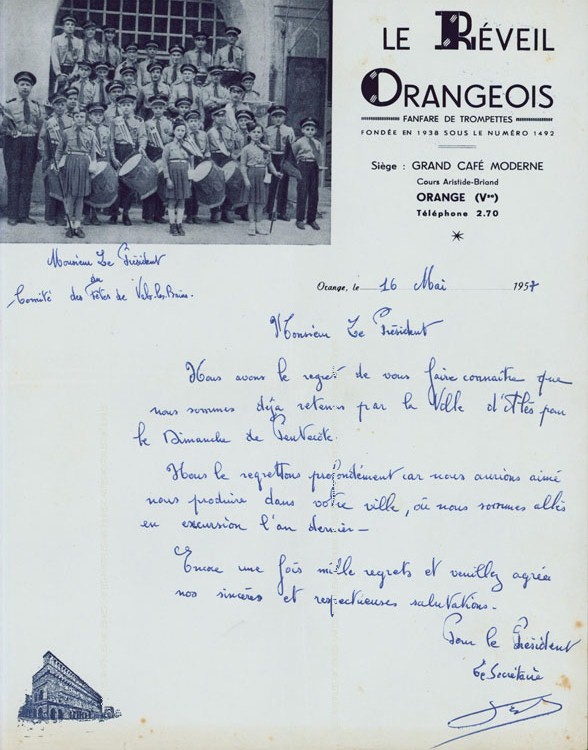 LE RÉVEIL
ORANGEOIS
FANFARE DE TROMPETTES
FONDÉE EN 1938 SOUS LE NUMÉRO 1492
Siège : GRAND CAFÉ MODERNE
Cours Aristide-Briand
ORANGE (Vse)
Téléphone 2.70
Monsieur Le Président
du
Comité des Fêtes de Vals-les-Bains.
Orange, le 16 Mai 1957
Monsieur Le Président
Nous avons le regret de vous faire connaitre que
nous sommes déja retenus par la Ville d'Alès pour
le Dimanche de Pentecôte.
Nous le regrettons profondément car nous aurions aimé
nous produire dans votre ville, où nous sommes allés
en excursion l'an dernier —
Encore une fois mille regrets et veuillez agréer
nos sincères et respectueuses salutations.
Pour le Président
Le Secrétaire